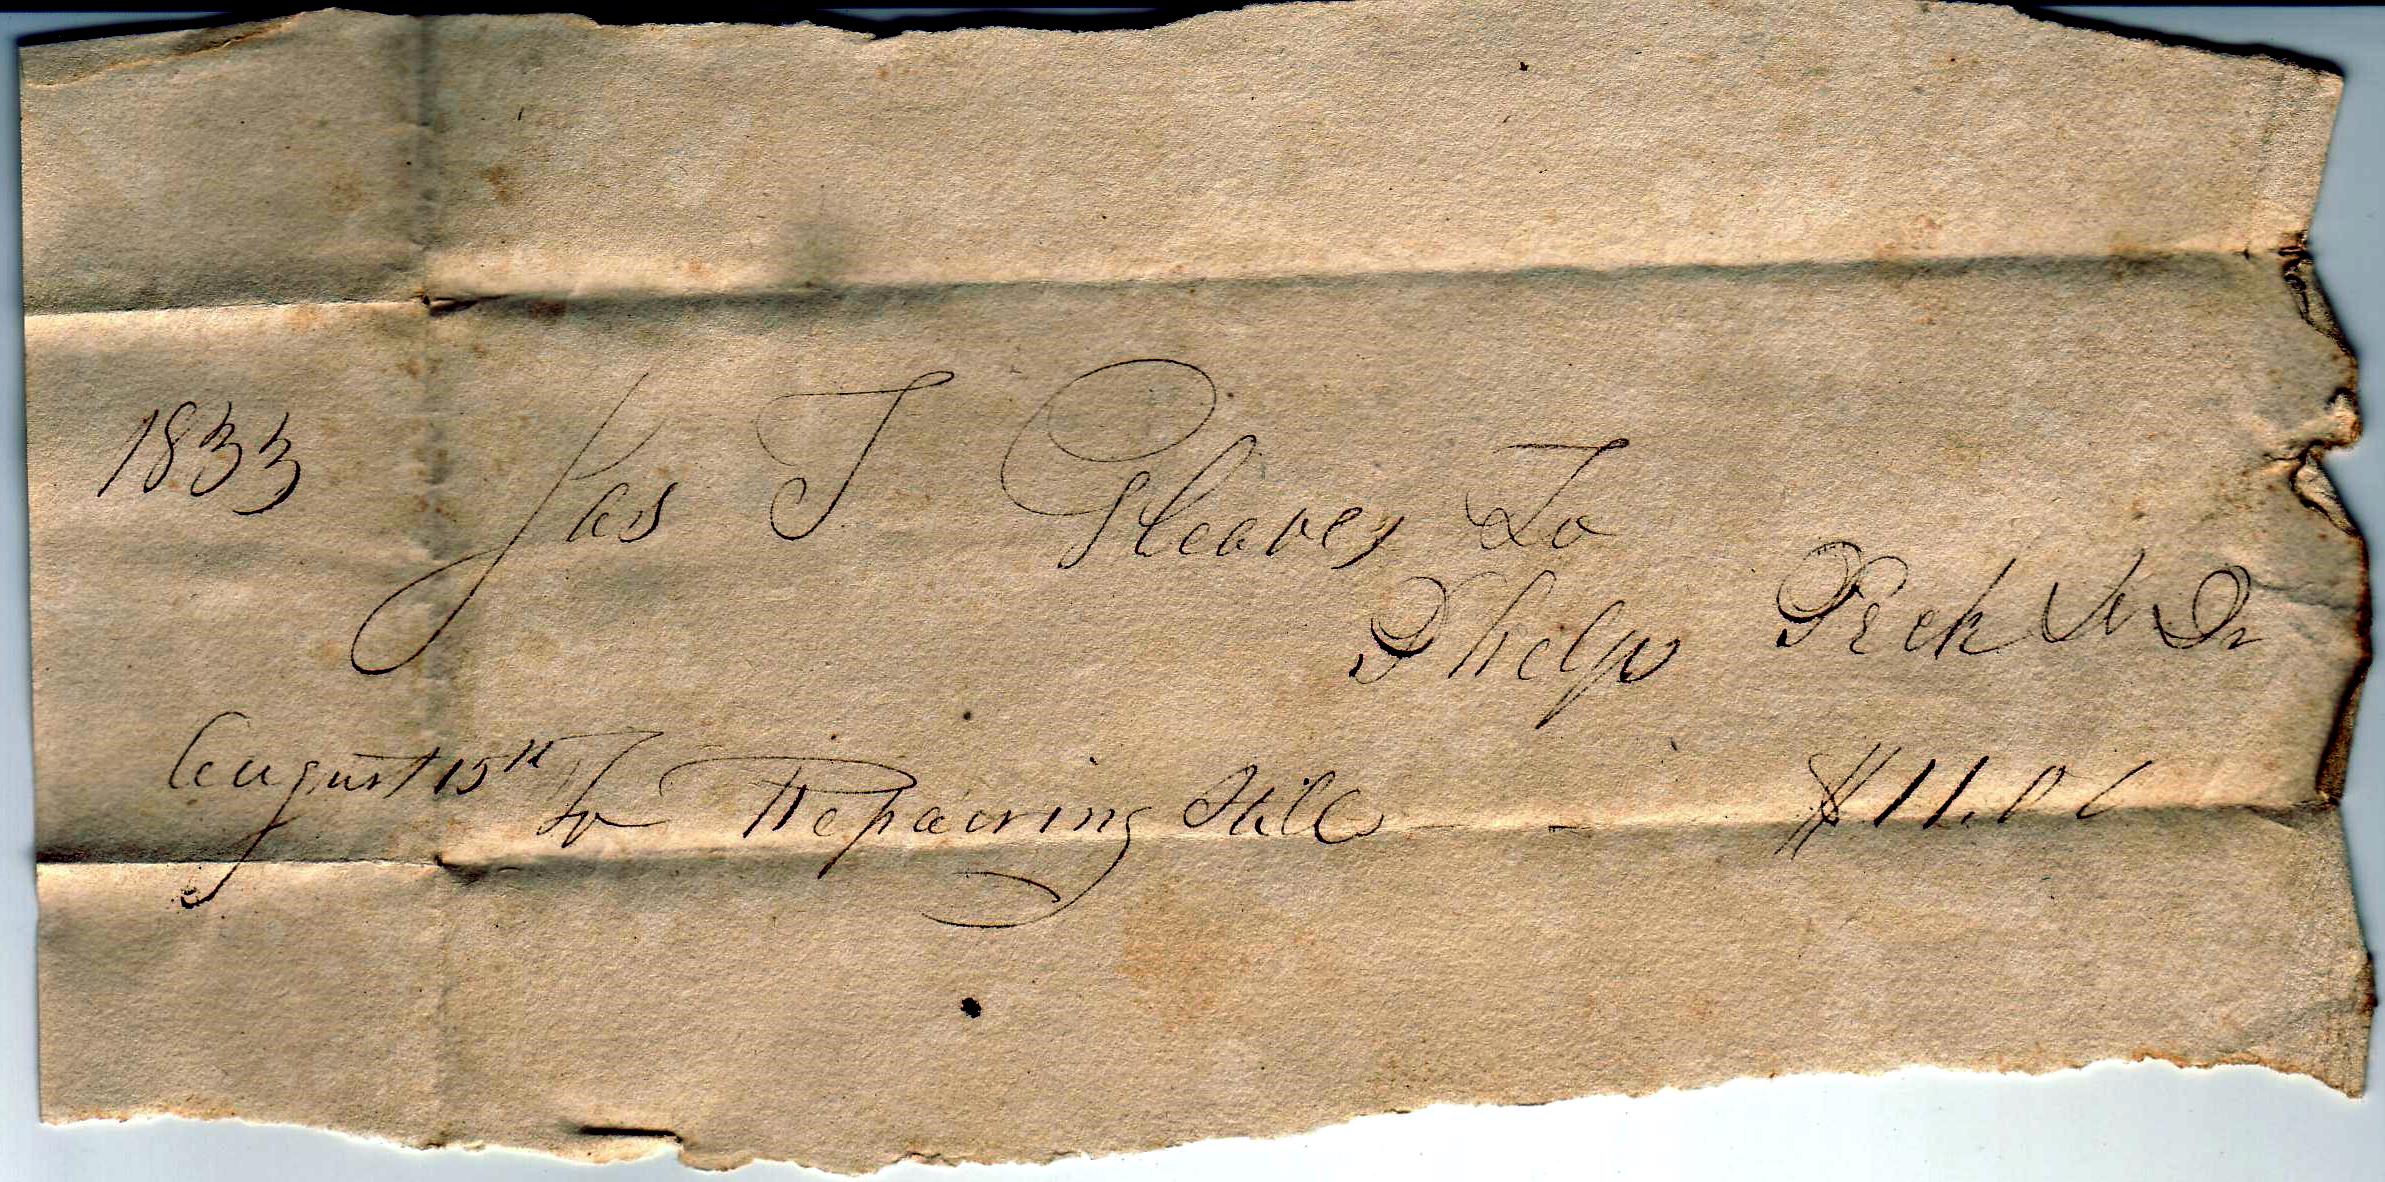 1833 Jas T Gleaves To
Phelps Peck Dr
August 15th To Repairing Still $11.00